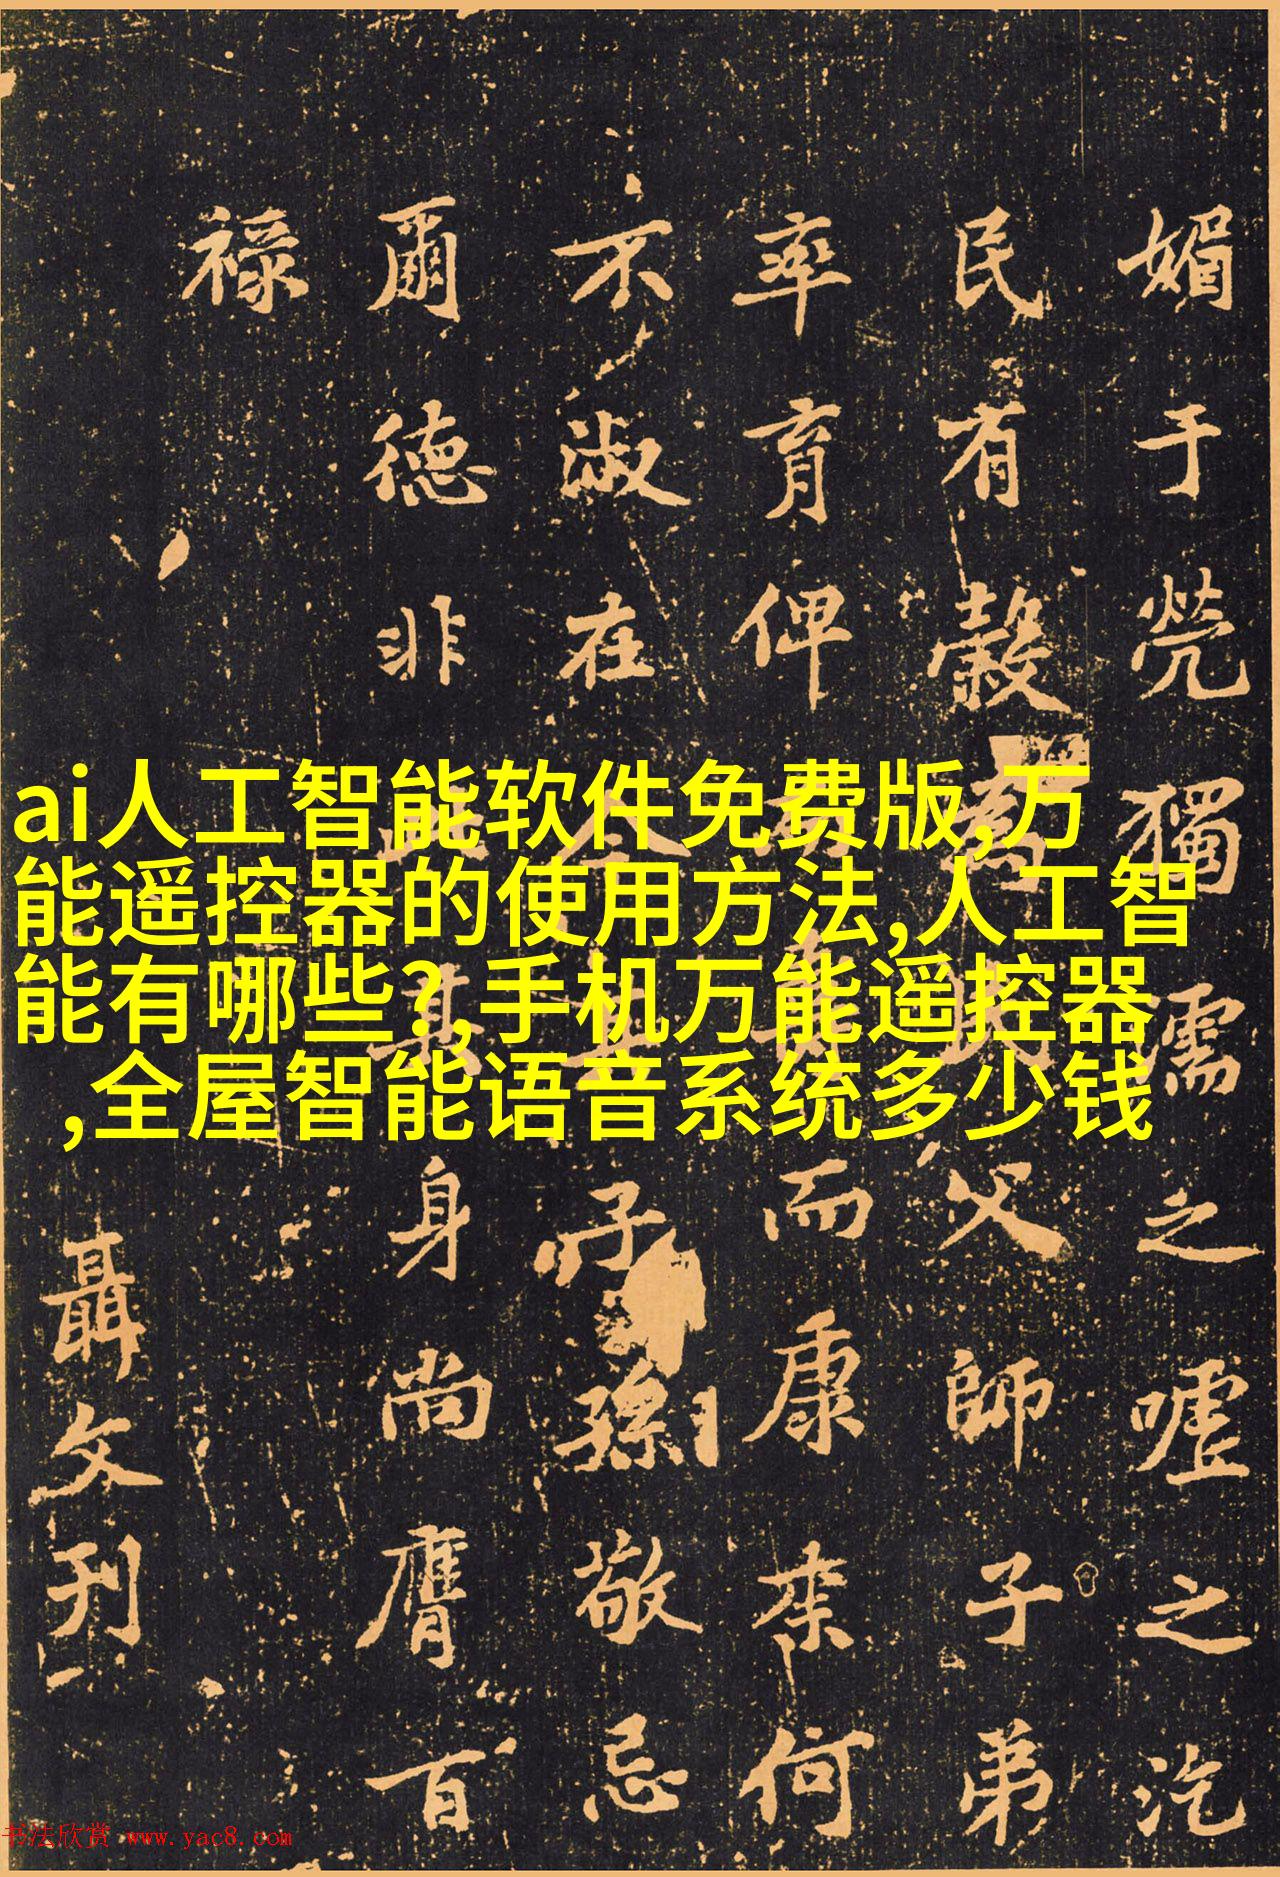 ai人工智能软件免费版,万
能遥控器的使用方法,人工智
能有哪些?,手机万能遥控器
,全屋智能语音系统多少钱
媚于茕獨 濡之嘘之汔
民有穀 父師子弟
率育俾 而康来何
不淑在 子孫敬忌
爾德非 身尚膺百
禄
聶文刊
书法欣赏 www.yac8.com